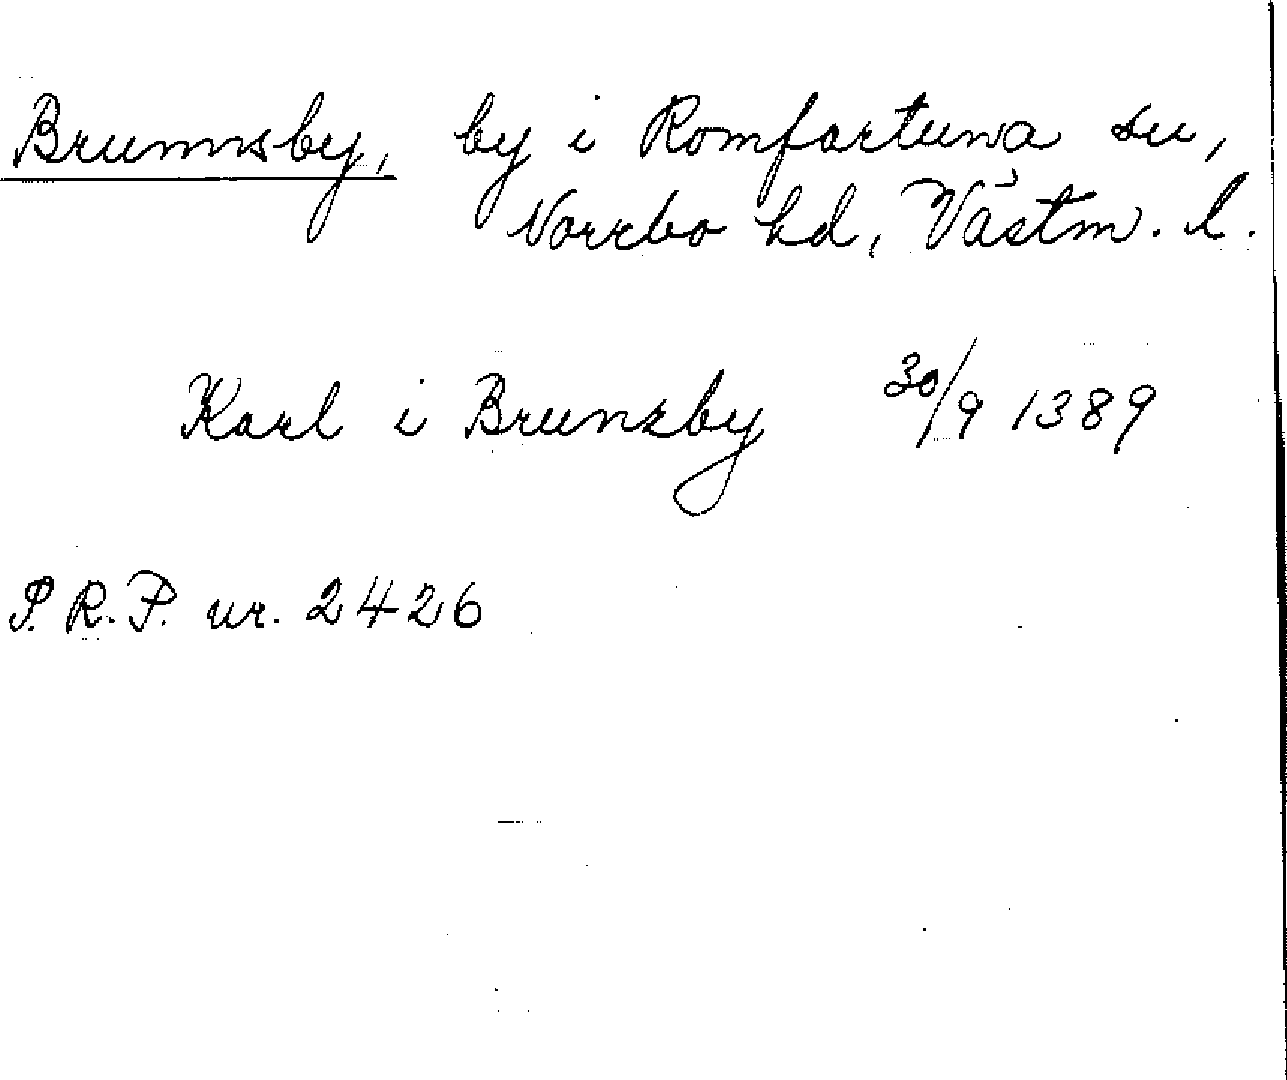 Brunnsby, by i Romfartuna sn,
Norrbo hd, Västm. l.
Karl i Brunzby 30/9 1389
S.R.P. nr. 2426